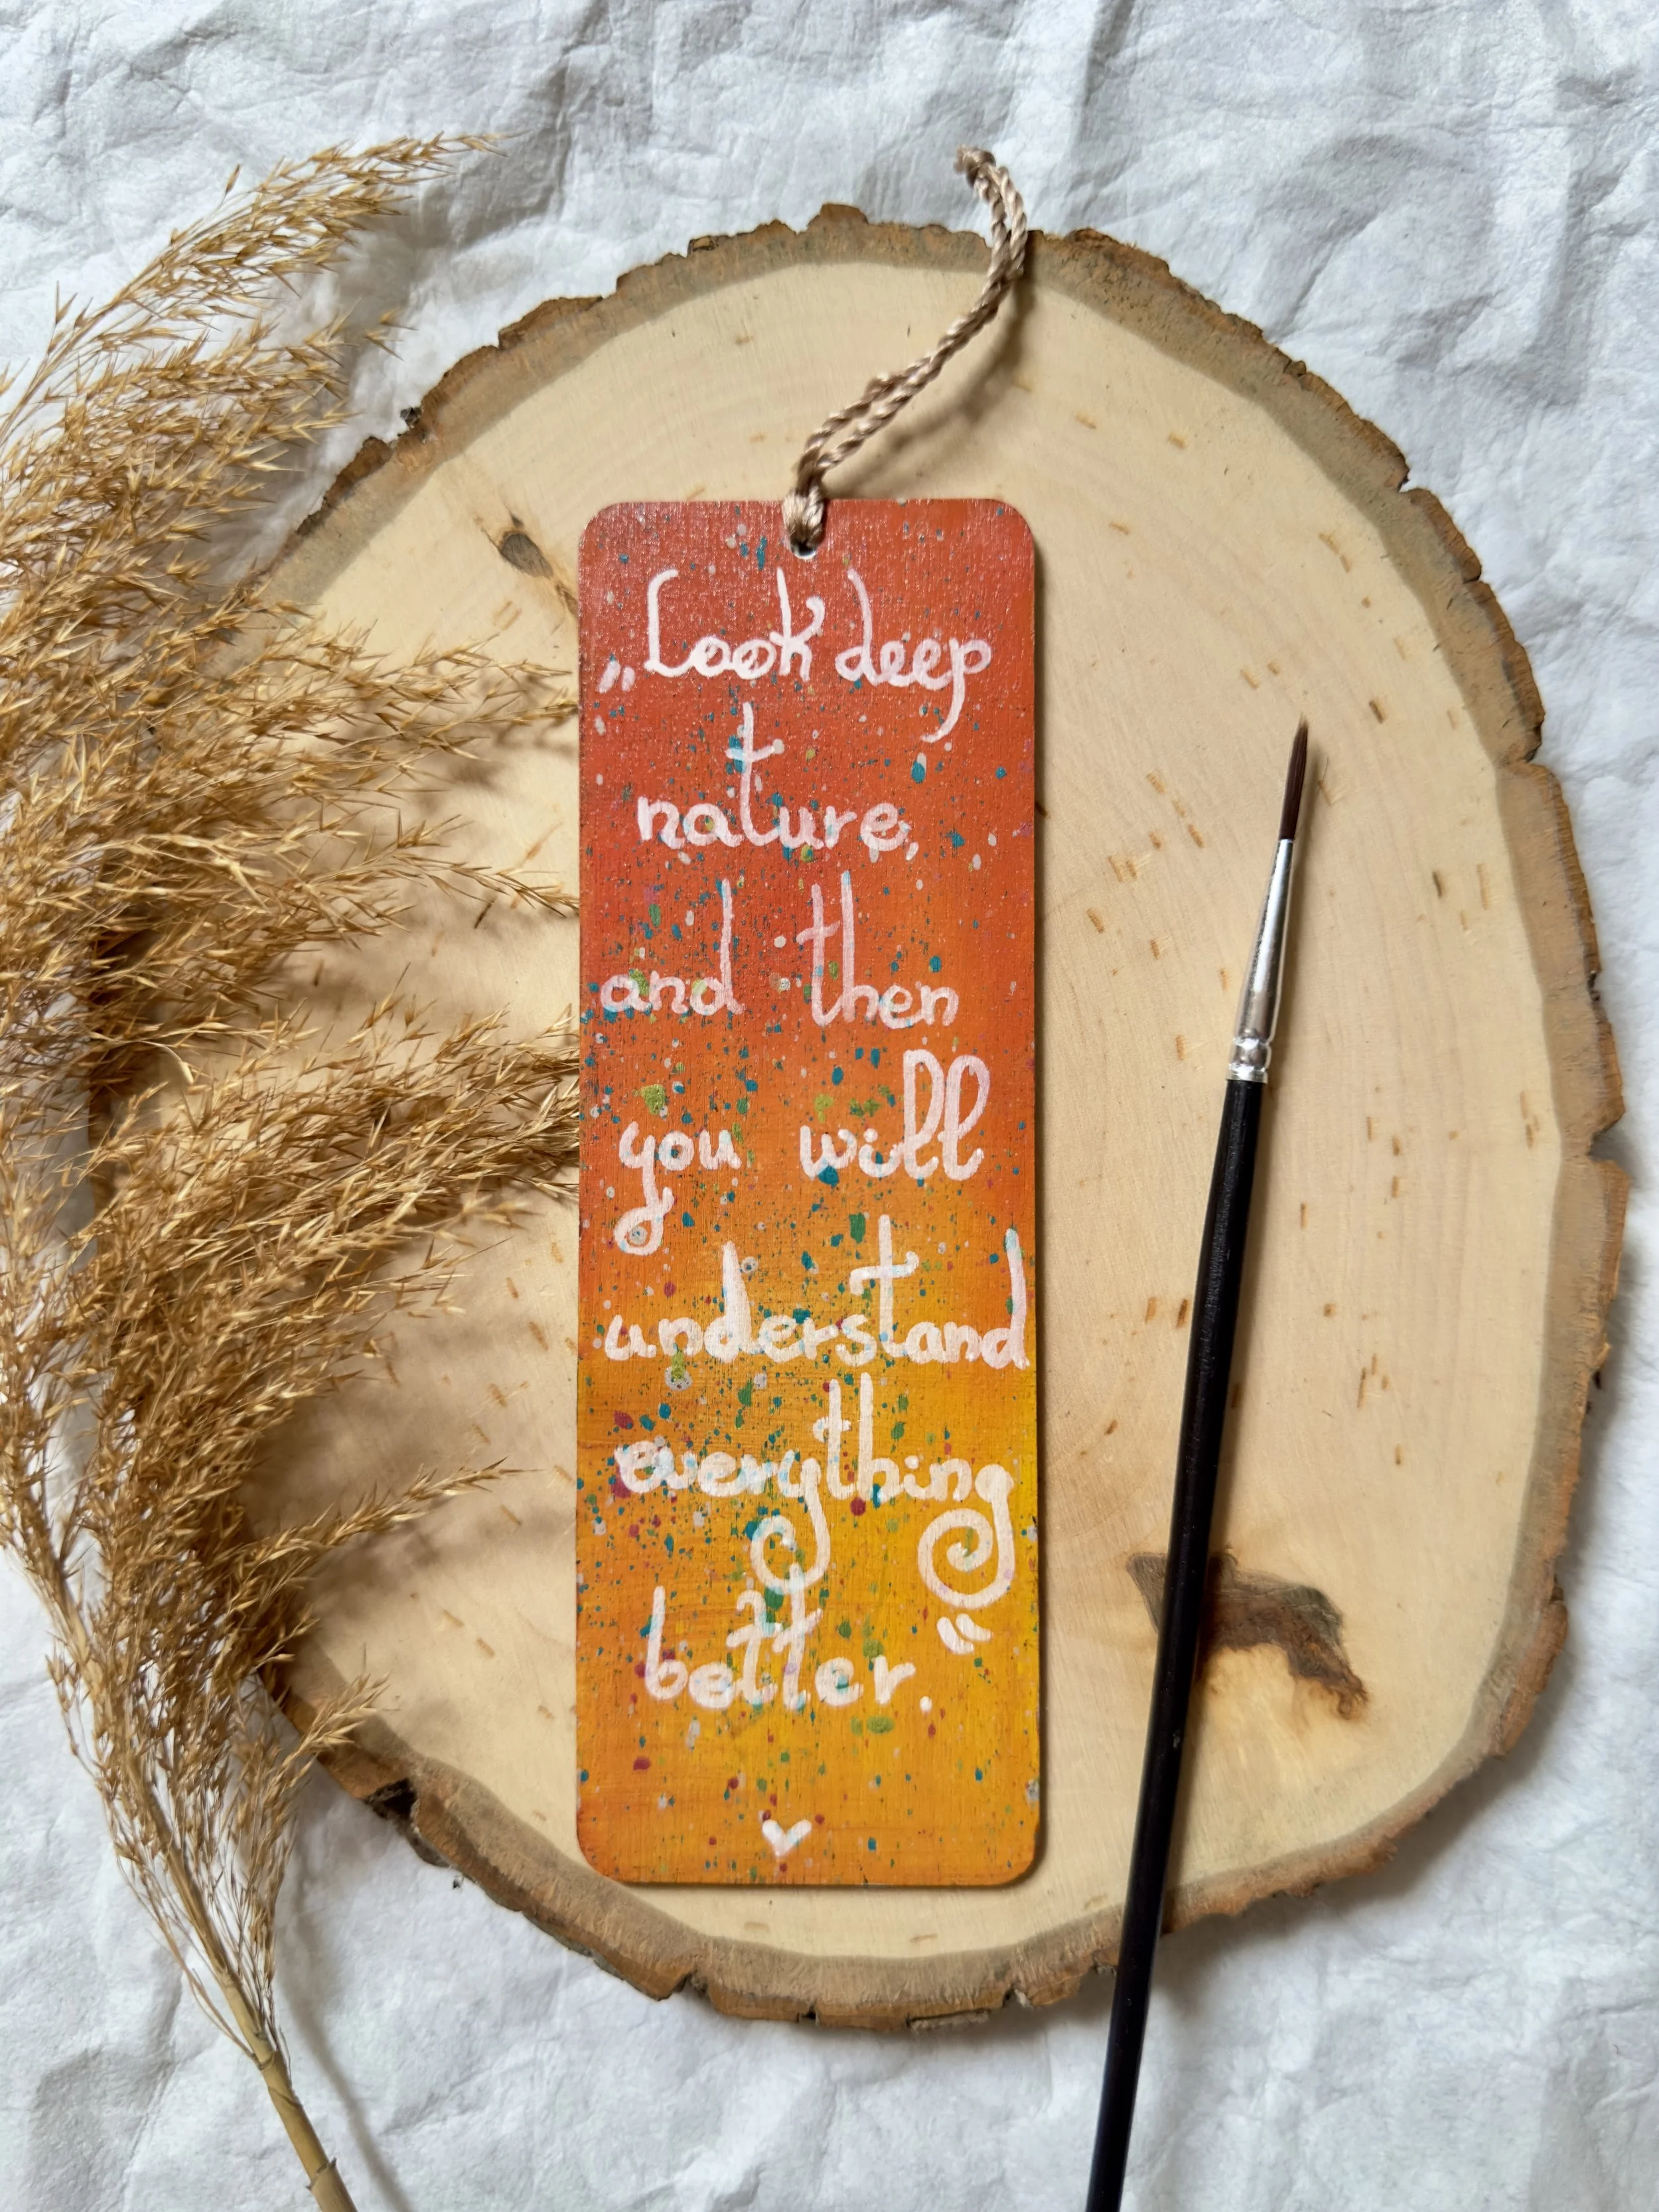 „Look deep
nature,
and then
you will
understand
everything
better."